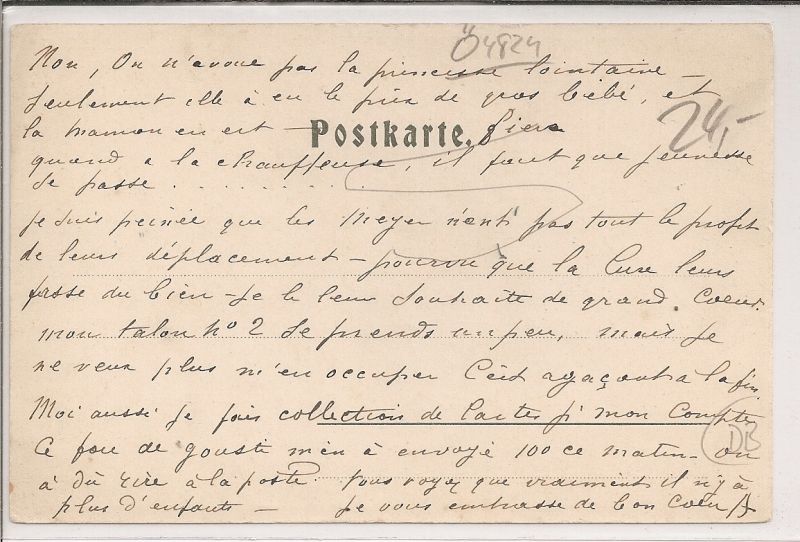 Ö4824
24,-
Non, On n'avoue pas la princesse lointaine –
Seulement elle à eu le prix de gros bébé, et
la maman en est – Postkarte. fière
quand a la chauffeuse, il faut que jeunesse
se passe . . . . . . . . .
je suis peinée que les Meyer n'ent pas tout le profit
de leurs déplacement – pourvu que la Cure leurs
fasse du bien – Je le leur Souhaite de grand Coeur.
mon talon No 2 Se prends un peu, mais je
ne veux plus m'en occuper C'est agaçant a la fin
Moi aussi je fais collection de Cartes p' mon Compte
Ce fou de Gousti m'en à envoyé 100 ce matin – on
à dû rire à la poste. Vous voyez que vraiment il n'y à
plus d'enfants – Je vous embrasse de bon Coeur A
DB